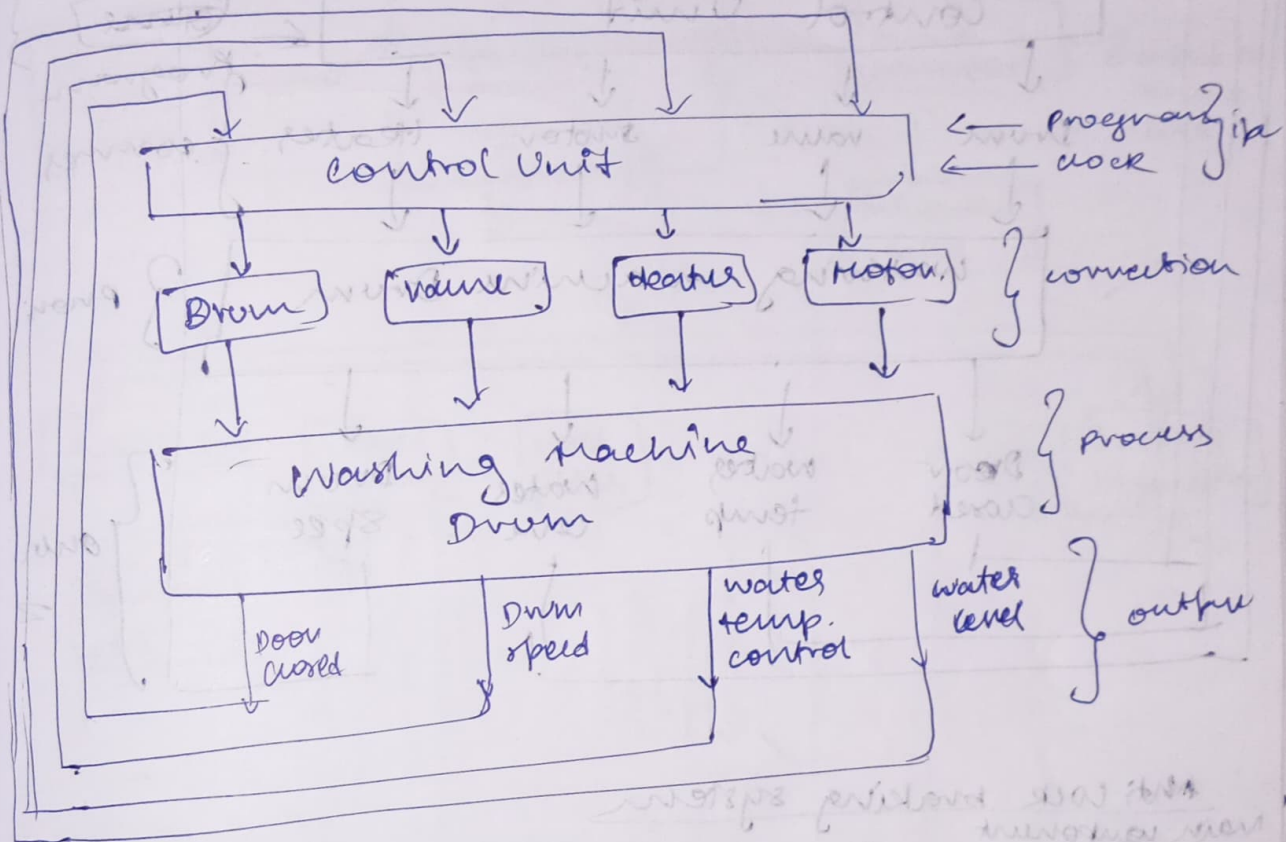 program } i/p
Control Unit
clock
Drum
Valve
Heater
Motor
correction
Washing Machine
Drum
process
Door
closed
Drum
speed
water
temp.
control
water
level
output